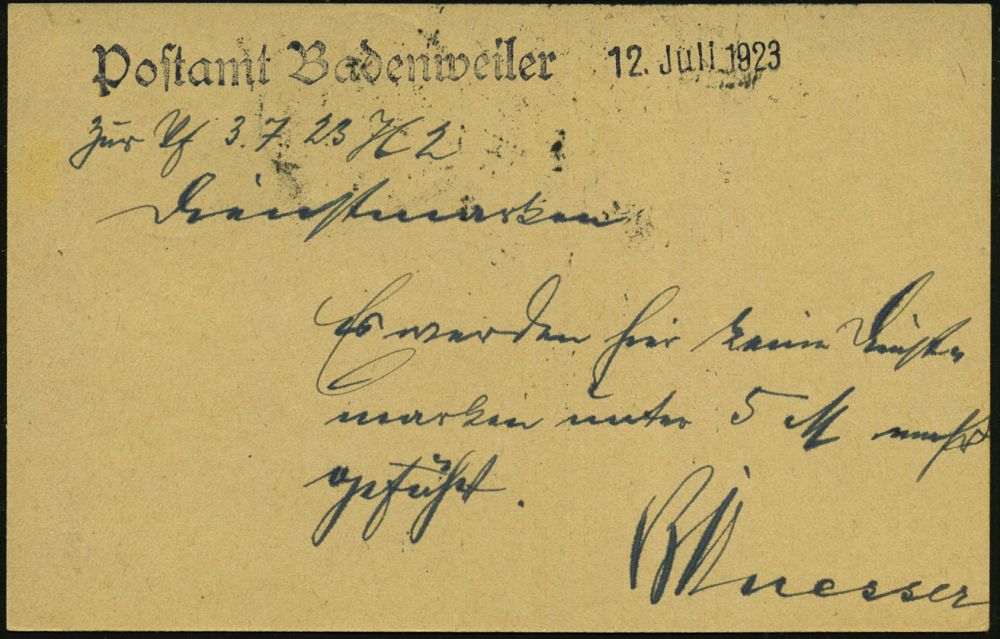 Postamt Badenweiler 12. Juli 1923
Zur Pf 3. 7. 23 H 2
Dienstmarken
Es werden hier keine Dienst-
marken unter 5 M mehr
geführt.